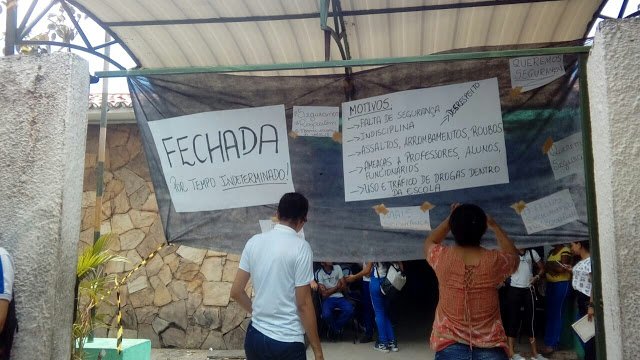 QUEREMOS
SEGURANÇA
FECHADA
POR TEMPO INDETERMINADO!
MOTIVOS.
→ FALTA DE SEGURANÇA
→ DESRESPEITO
→ INDISCIPLINA
→ ASSALTOS, ARROMBAMENTOS, ROUBOS
→ AMEAÇAS A PROFESSORES, ALUNOS,
FUNCIONÁRIOS
→ USO E TRÁFICO DE DROGAS DENTRO
DA ESCOLA